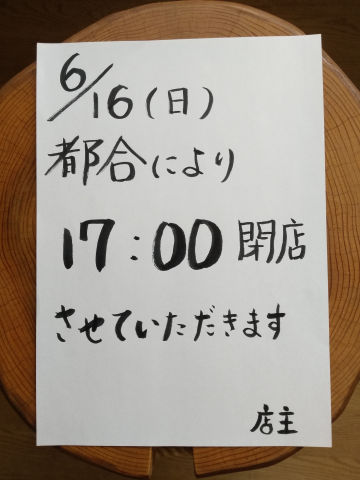 6/16(日)
都合により
17:00閉店
させていただきます
店主